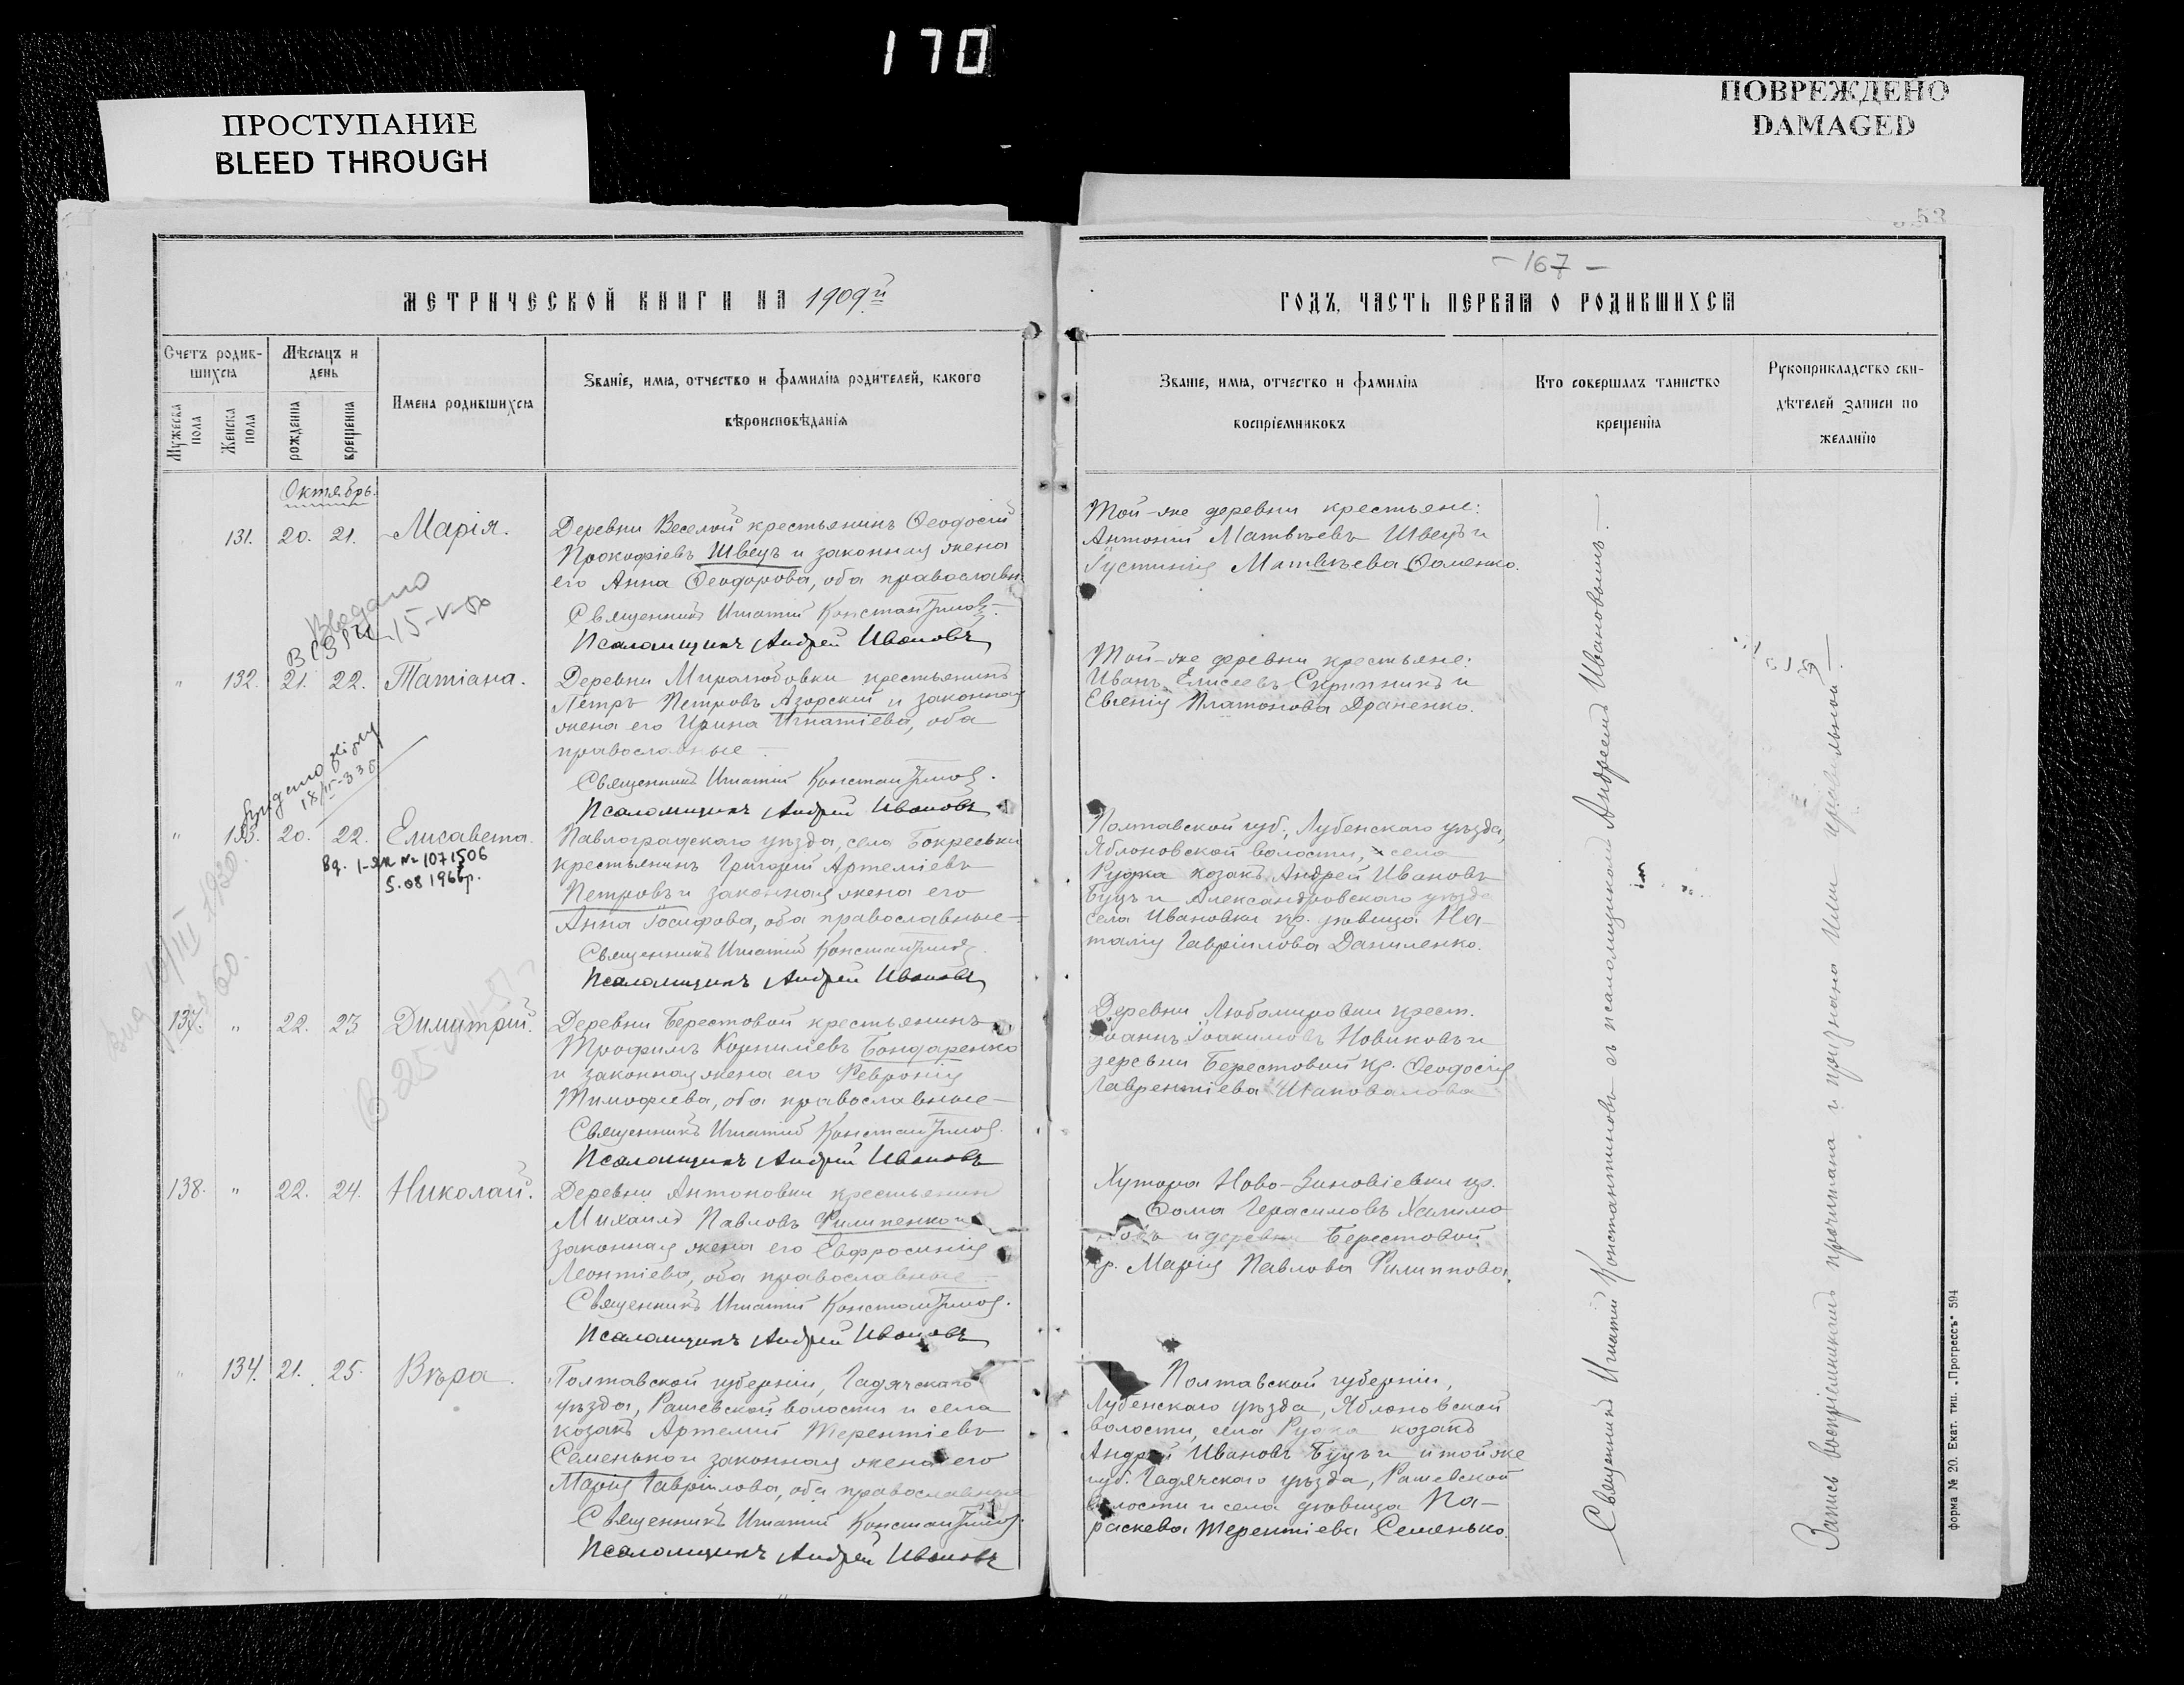 170
ПРОСТУПАНИЕ
BLEED THROUGH
ПОВРЕЖДЕНО
DAMAGED
МЕТРИЧЕСКОЙ КНИГИ НА 1909й
Счетъ родив-
шихся
Мѣсяцъ и
день
Мужеска
пола
Женска
пола
рожденiя
крещенiя
Имена родившихся
Званiе, имя, отчество и фамилiя родителей, какого
вѣроисповѣданiя
Октябрь.
131. 20. 21. Марія.
Деревни Веселой крестьянинъ Ѳеодосій
Прокофіевъ Швецъ и законная жена
его Анна Ѳеодорова, оба православн.
Священникъ Игнатій Константиновъ.
Псаломщикъ Андрей Ивановъ
15-V-50
" 132. 21. 22. Татіана.
Деревни Миролюбовки крестьянинъ
Петръ Петровъ Азорскій и законная
жена его Ирина Игнатіева, оба
православные
Священникъ Игнатій Константиновъ.
Псаломщикъ Андрей Ивановъ
" 133. 20. 22. Елисавета.
Вд. I-ЯК № 1071506
5.08 1966р.
Павлоградскаго уѣзда, села Богрееьки
крестьянинъ Григорій Артеміевъ
Петровъ и законная жена его
Анна Іосифова, оба православные
Священникъ Игнатій Константиновъ.
Псаломщикъ Андрей Ивановъ
137. " 22. 23 Димитрій.
Деревни Берестовой крестьянинъ
Трофимъ Корниліевъ Бондаренко
и законная жена его Февронія
Тимофеева, оба православные
Священникъ Игнатій Константиновъ.
Псаломщикъ Андрей Ивановъ
138. " 22. 24. Николай.
Деревни Антоновки крестьянинъ
Михаилъ Павловъ Филипенко и
законная жена его Евфросинія
Леонтіева, оба православные
Священникъ Игнатій Константиновъ.
Псаломщикъ Андрей Ивановъ
" 134. 21. 25. Вѣра.
Полтавской губерніи, Гадячскаго
уѣзда, Рашевской волости и села
козакъ Артемій Терентіевъ
Семенько и законная жена его
Марія Гавріилова, оба православные
Священникъ Игнатій Константиновъ.
Псаломщикъ Андрей Ивановъ
53
- 167 -
ГОДЪ, ЧАСТЬ ПЕРВАЯ О РОДИВШИХСЯ
Званiе, имя, отчество и фамилiя
воспрiемниковъ
Кто совершалъ таинство
крещенiя
Рукоприкладство сви-
дѣтелей записи по
желанiю
Той-же деревни крестьяне:
Антоній Матвѣевъ Швецъ и
Іустинія Матвѣева Ѳоменко.
Той-же деревни крестьяне:
Иванъ Елисеевъ Скрипникъ и
Евгенія Платонова Драненко.
Полтавской губ., Лубенскаго уѣзда,
Яблоновской волости, села
Рудка козакъ Андрей Ивановъ
Буцъ и Александровскаго уѣзда
села Ивановки кр. дѣвица На-
талія Гавріилова Даниленко.
Деревни Любомировки крест.
Іоаннъ Іоакимовъ Новиковъ и
деревни Берестовой кр. Ѳеодосія
Лаврентіева Шаповалова
Хутора Ново-Зиновіевки кр.
Ѳома Герасимовъ Халимо
новъ и деревни Берестовой
кр. Марія Павлова Филиппова.
Полтавской губерніи,
Лубенскаго уѣзда, Яблоновской
волости, села Рудка козакъ
Андрей Ивановъ Буцъ и той же
губ. Гадячскаго уѣзда, Рашевской
волости и села дѣвица Па-
раскева Терентіева Семенько.
Священникъ Игнатій Константиновъ съ псаломщикомъ Андреемъ Ивановымъ.
Запись воспріемникамъ прочитана и признана ими правильной
форма № 20. Екат. тип. „Прогрессъ" 594